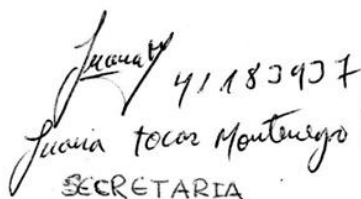 Juana 41183937
Juana Tocas Montenegro
SECRETARIA